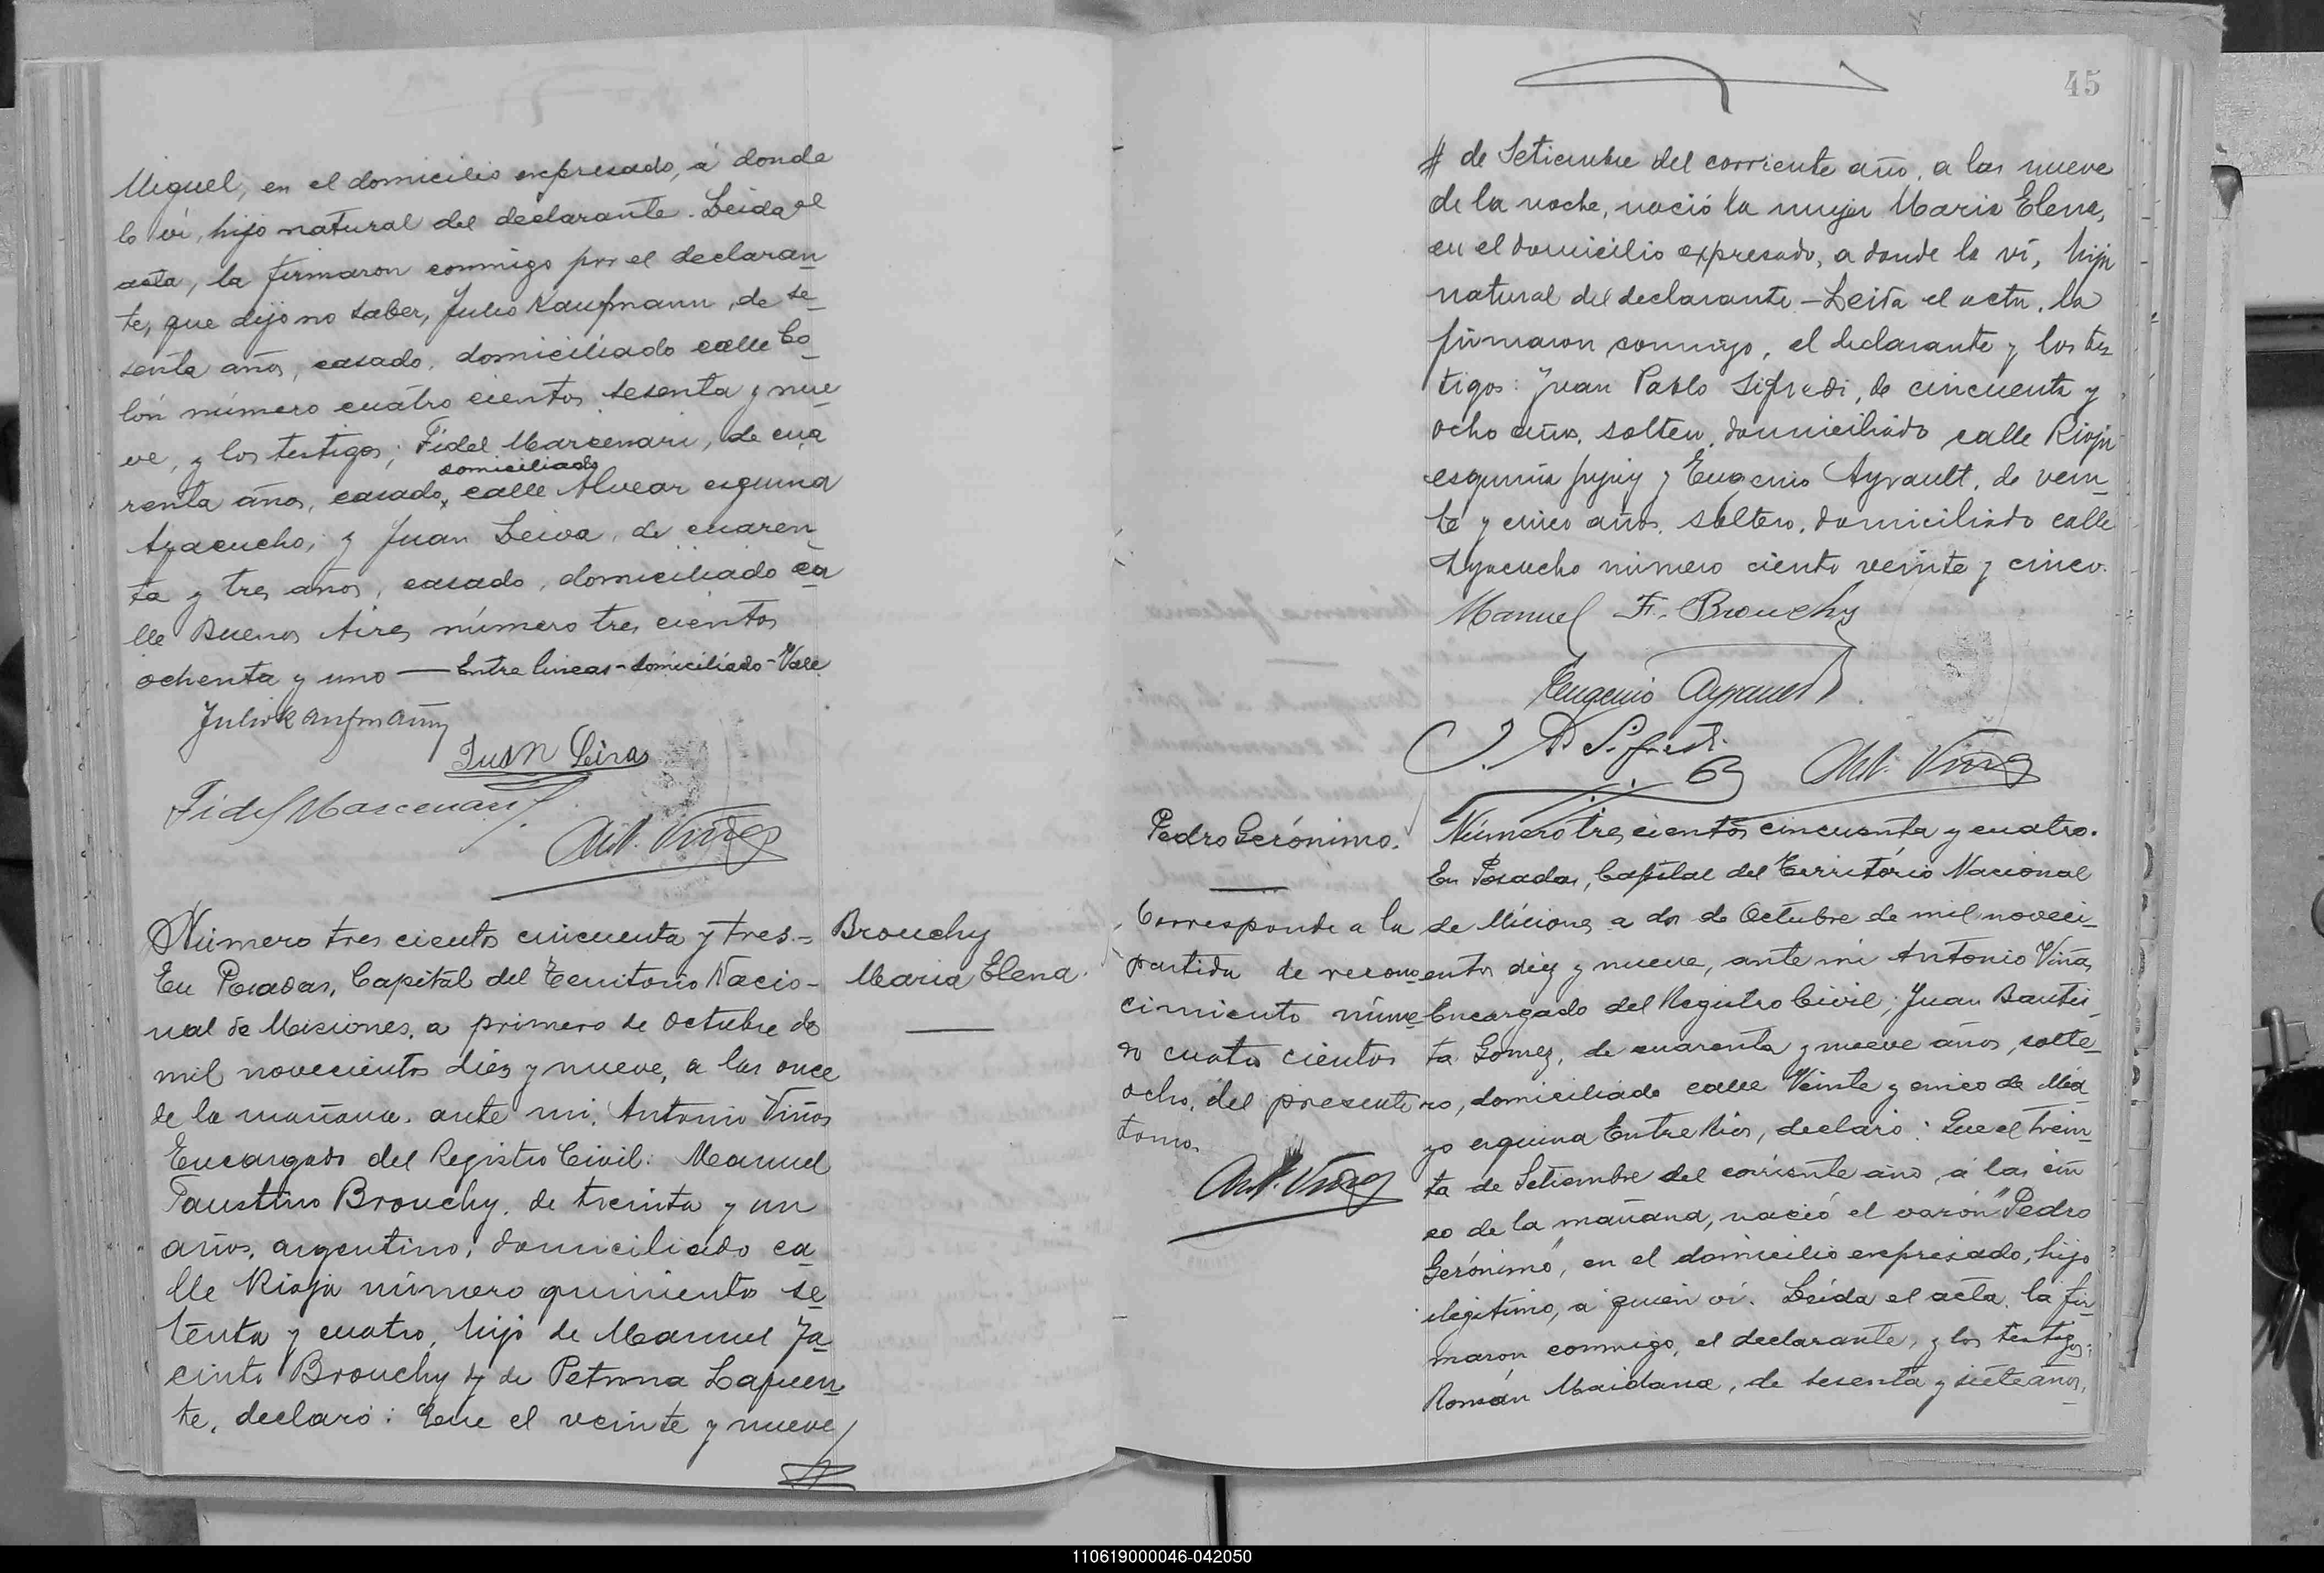 Miguel, en el domicilio expresado, á donde
lo ví, hijo natural del declarante. Leida el
acta, la firmaron conmigo por el declaran
te, que dijo no saber, Julio Kaufmann, de se
senta años, casado, domiciliado calle Co
lón número cuatro cientos sesenta y nue
ve, y los testigos; Fidel Marcenari, de cua
domiciliado
renta años, casado, calle Alvear esquina
Ayacucho, y Juan Leiva, de cuaren
ta y tres años, casado, domiciliado ca
lle Buenos Aires número tres cientos
ochenta y uno — Entre lineas - domiciliado - Vale
Julio Kaufmann
Juan Leiva
Fidel Marcenari
Ant. Viñas
Número tres cientos cincuenta y tres.-
En Posadas, Capital del Territorio Nacio-
nal de Misiones, a primero de Octubre de
mil novecientos diez y nueve, a las once
de la mañana, ante mi, Antonio Viñas
Encargado del Registro Civil: Manuel
Faustino Brouchy, de treinta y un
años, argentino, domiciliado ca
lle Rioja número quinientos se
tenta y cuatro, hijo de Manuel Ja
cinto Brouchy y de Petrona Lapuen
te, declaró: Que el veinte y nueve
Brouchy
Maria Elena.
45
# de Setiembre del corriente año, a las nueve
de la noche, nació la mujer Maria Elena,
en el domicilio expresado, a donde la ví, hija
natural del declarante - Leida el acta, la
firmaron conmigo, el declarante y los tes
tigos: Juan Pablo Sifredi, de cincuenta y
ocho años, soltero, domiciliado calle Rioja
esquina Jujuy y Eugenio Ayrault, de vein
te y cinco años, soltero, domiciliado calle
Ayacucho número ciento veinte y cinco.
Manuel F. Brouchy
Eugenio Ayrault
J. P. Sifredi
Ant. Viñas
Pedro Gerónimo.
Corresponde a la
partida de recono
cimiento núme
ro cuatro cientos
ocho, del presente
tomo.
Ant. Viñas
Número tres cientos cincuenta y cuatro.
En Posadas, Capital del Territorio Nacional
de Misiones a dos de Octubre de mil noveci-
entos diez y nueve, ante mi Antonio Viñas,
Encargado del Registro Civil; Juan Bautis
ta Gomez, de cuarenta y nueve años, solte-
ro, domiciliado calle Veinte y cinco de Ma
yo esquina Entre Rios, declaró: Que el trein
ta de Setiembre del corriente año, á las cin
co de la mañana, nació el varón "Pedro
Gerónimo", en el domicilio expresado, hijo
ilegítimo, a quien ví. Leída el acta, la fir
maron conmigo, el declarante, y los testigos:
Román Maidana, de sesenta y siete años,
110619000046-042050